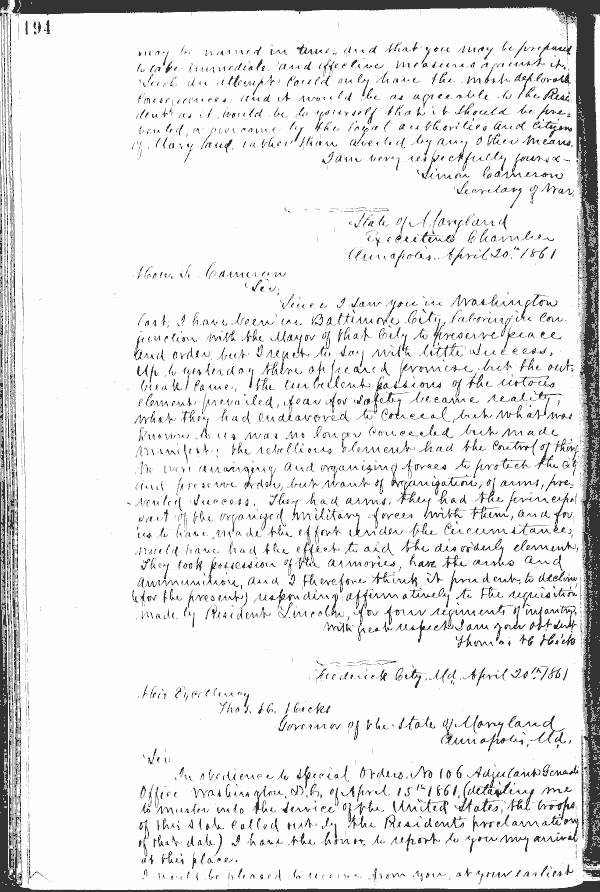 194
may be warned in time, and that you may be prepared
to take immediate and effective measures against it.
Such an attempt could only have the most deplorable
consequences and it would be as agreeable to the Presi
dent as it would be to yourself that it should be pre-
vented, or overcome by the loyal authorities and citizens
of Maryland, rather than averted by any other means.
I am very respectfully yours &-
Simon Cameron
Secretary of War
State of Maryland
Executive Chamber
Annapolis April 20th 1861
Hon. S. Cameron
Sir,
Since I saw you in Washington
last, I have been in Baltimore City, laboring in con
junction with the Mayor of that City to preserve peace
and order but I regret to say with little success.
Up to yesterday there appeared promise, but the out-
break came, the turbulent passions of the riotous
element prevailed, fear for safety became reality,
what they had endeavored to conceal, but what was
known to us was no longer concealed but made
manifest; the rebellious element had the control of things
We were arranging and organising forces to protect the City
and preserve order, but want of organization, of arms, pre-
vented success. They had arms, they had the principal
part of the organized military forces with them, and for
us to have made the effort under the circumstances,
would have had the effect to aid the disorderly element,
They took possession of the armories, have the arms and
ammunition, and I therefore think it prudent to decline
(for the present) responding affirmatively to the requisition
made by President Lincoln for four regiments of infantry.
With great respect I am your Obt Servt
Thomas H Hicks
Frederick City Md. April 20th 1861
His Excellency
Thos. H. Hicks
Governor of the State of Maryland
Annapolis, Md.
Sir
In obedience to Special Orders No 106 Adjutant Generals
Office Washington, D.C. of April 15th 1861, (detailing me
to muster into the service of the United States, the troops
of this State called out by the Presidents proclamation
of that date) I have the honor to report to you my arrival
at this place.
I would be pleased to receive from you, at your earliest